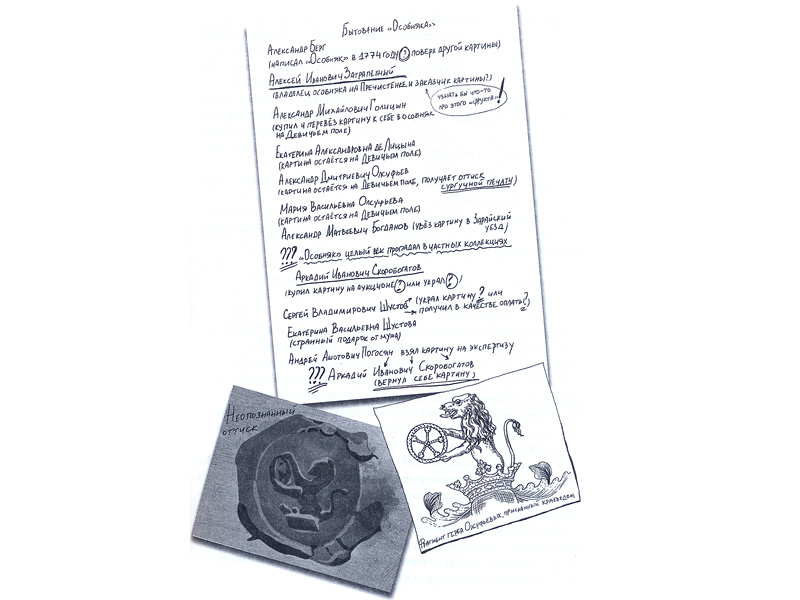 Бытование «Особняка»
Александр Берг
(написал «Особняк» в 1774 году ? поверх другой картины)
Алексей Иванович Затрапезный
(владелец особняка на Пречистенке и заказчик картины?)
узнать бы что-то
про этого «фрукта»!
Александр Михайлович Голицын
(купил и перевёз картину к себе в особняк
на Девичьем поле)
Екатерина Александровна де Лицына
(картина остаётся на Девичьем поле)
Александр Дмитриевич Олсуфьев
(картина остаётся на Девичьем поле, получает оттиск
сургучной печати)
Мария Васильевна Олсуфьева
(картина остаётся на Девичьем поле)
Александр Матвеевич Богданов (увёз картину в Зарайский
уезд)
??? «Особняк» целый век пропадал в частных коллекциях
Аркадий Иванович Скоробогатов
(купил картину на аукционе ? или украл ?)
Сергей Владимирович Шустов (украл картину ? или
получил в качестве оплаты ?)
Екатерина Васильевна Шустова
(странный подарок от мужа)
Андрей Ашотович Погосян взял картину на экспертизу
??? Аркадий Иванович Скоробогатов
(вернул себе картину)
Неопознанный
оттиск
Фрагмент герба Олсуфьевых, присланный краеведом